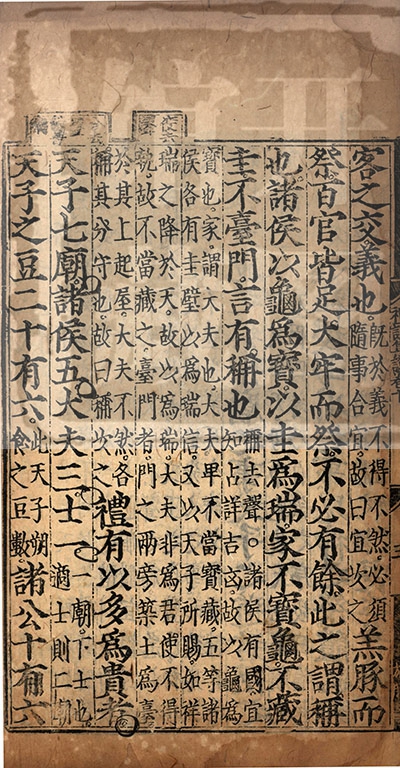 客之交義也。既於義不得不然。必須隨事合宜。故曰宜次之羔豚而
祭。百官皆足。大牢而祭。不必有餘。此之謂稱
也。諸侯以龜爲寶。以圭爲瑞。家不寶龜。不藏
圭。不臺門。言有稱也。稱去聲。諸侯有國宜知占詳吉凶。故以龜爲
寶也。家。謂大夫也。大夫卑不當寶藏。五等諸侯各有圭璧以爲瑞信。又以天子所賜。如祥
瑞之降於天。故以爲瑞。大夫非爲君使不得執。故不當藏之。臺門者。門之兩旁築土爲臺
於其上起屋。大夫不然。各稱其分守也。故曰稱次之禮有以多爲貴者
天子七廟。諸侯五。大夫三。士一。一廟。下士也。適士則二廟
天子之豆二十有六。此天子朔食之豆數。諸公十有六